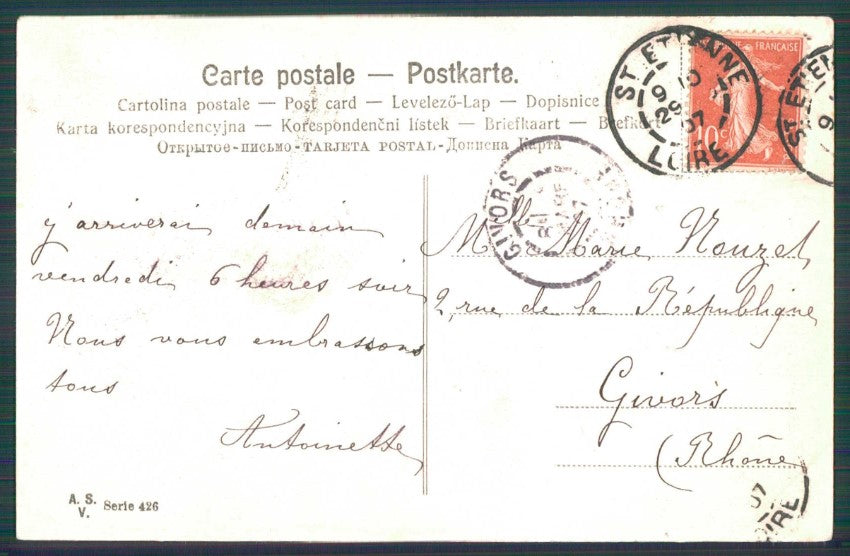 Carte postale — Postkarte.
Cartolina postale — Post card — Levelező-Lap — Dopisnice
Karta korespondencyjna — Korespondenční lístek — Briefkaart — Brefkort
Открытое-письмо-TARJETA POSTAL-Дописна Карта
ST ETIENNE
LOIRE
10 c
FRANÇAISE
GIVORS
j'arriverai demain
vendredi 6 heures soir
Nous vous embrassons
tous
Antoinette
Mlle Marie Nouzet
2, rue de la République
Givors
(Rhône
A. S.
V. Serie 426